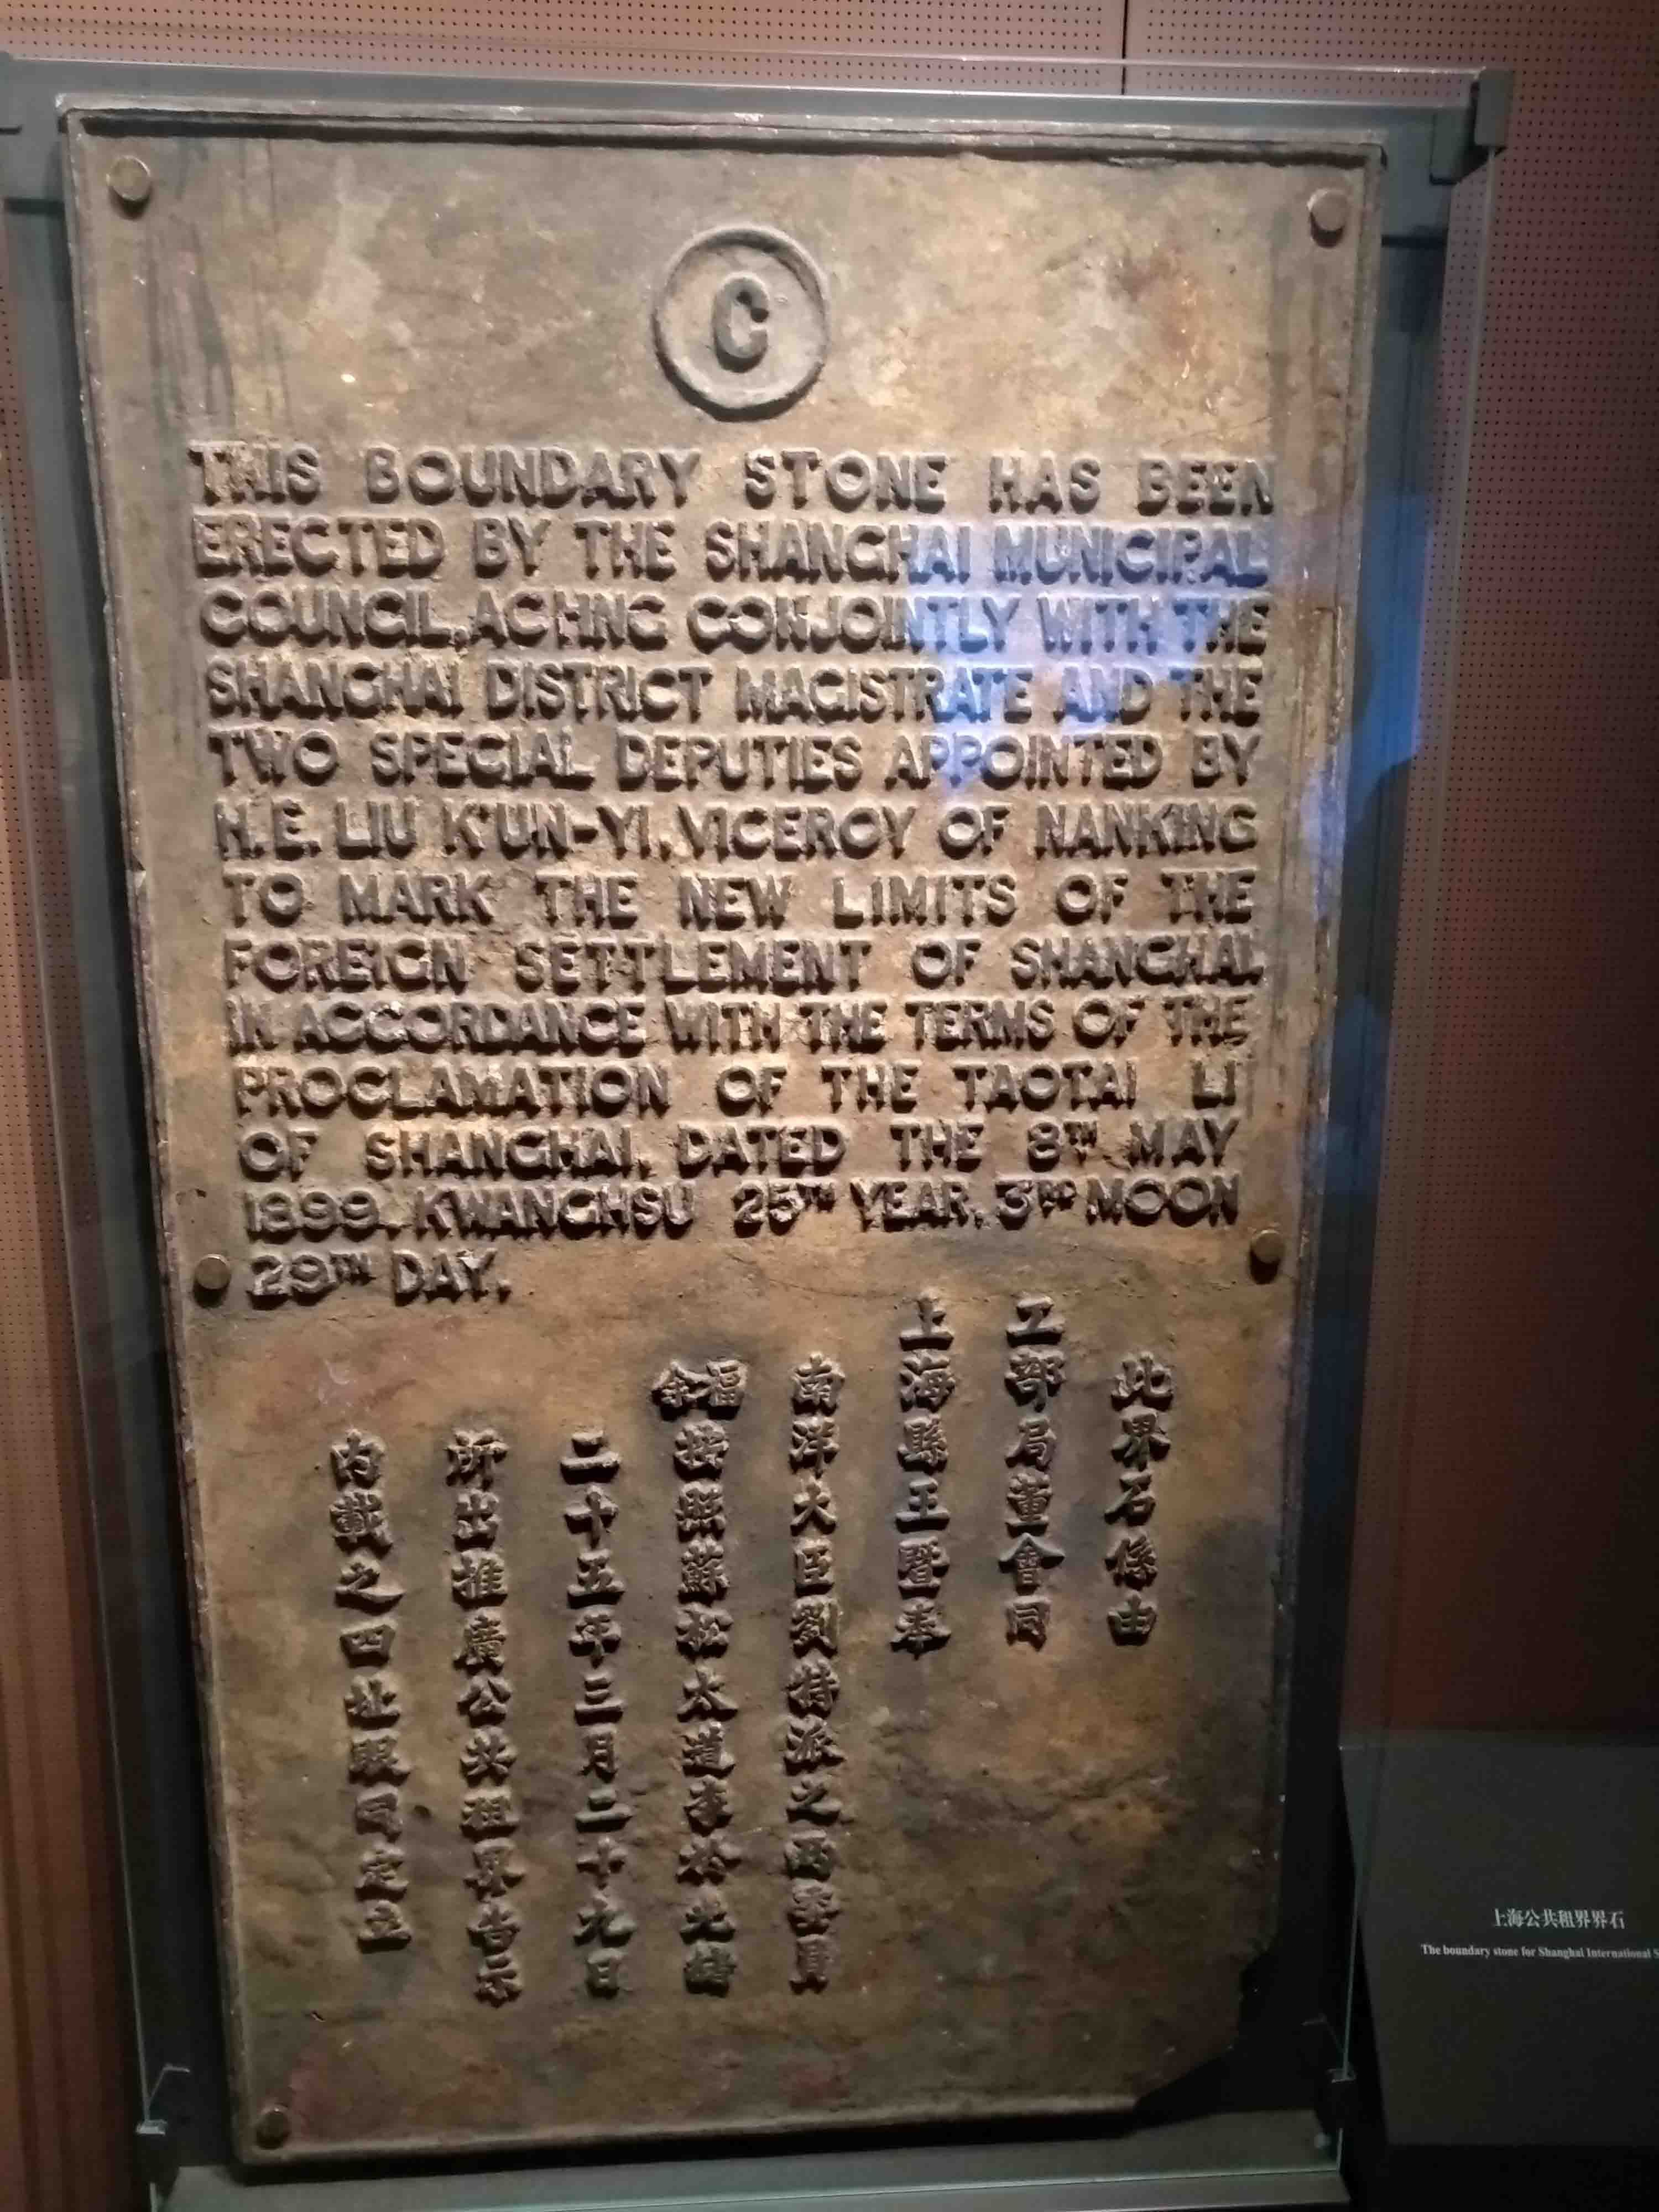 C
THIS BOUNDARY STONE HAS BEEN
ERECTED BY THE SHANGHAI MUNICIPAL
COUNCIL, ACTING CONJOINTLY WITH THE
SHANGHAI DISTRICT MAGISTRATE AND THE
TWO SPECIAL DEPUTIES APPOINTED BY
H.E. LIU K'UN-YI, VICEROY OF NANKING
TO MARK THE NEW LIMITS OF THE
FOREIGN SETTLEMENT OF SHANGHAI,
IN ACCORDANCE WITH THE TERMS OF THE
PROCLAMATION OF THE TAOTAI LI
OF SHANGHAI, DATED THE 8TH MAY
1899. KWANGHSU 25TH YEAR, 3RD MOON
29TH DAY.
此界石係由
工部局董會同
上海縣王暨奉
南洋大臣劉特派之兩委員
福余按照蘇松太道李於光緒
二十五年三月二十九日
所出推廣公共租界告示
內載之四址眼同定立
上海公共租界界石
The boundary stone for Shanghai International S